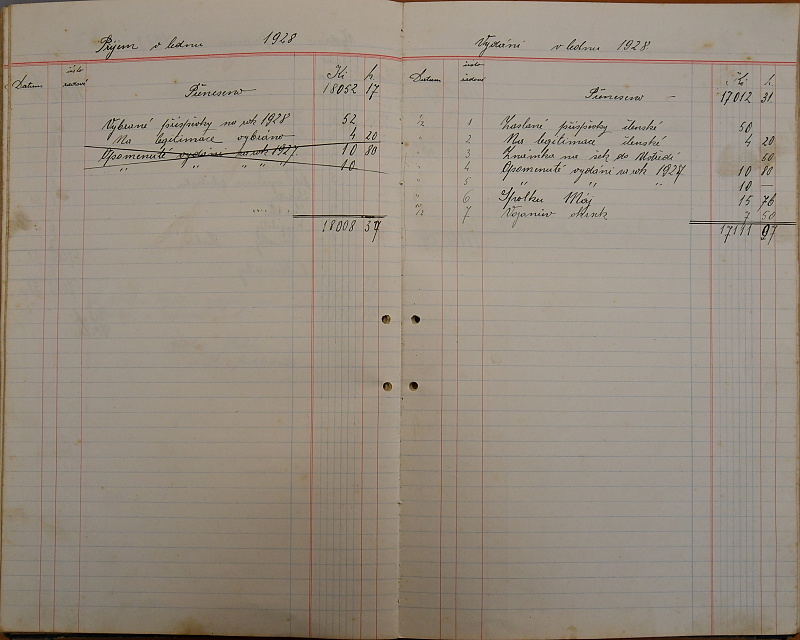 Příjem v lednu 1928
Datum číslo řadové Kč h
Přeneseno 18052 17
Vybrané příspěvky na rok 1928 52
Na legitimace vybráno 4 20
Opomenuté vydání na rok 1927. 10 80
" " " " " 10
18008 37
Vydání v lednu 1928
Datum číslo řadové Kč h
Přeneseno — 17012 31
1 Zaslané příspěvky členské 50
" 2 Na legitimace členské 4 20
" 3 Známka na šek do Ústředí 60
" 4 Opomenuté vydání na rok 1927 10 80
" 5 " " " 10 —
6 Spolku Máj 15 76
7 7 50
17111 97